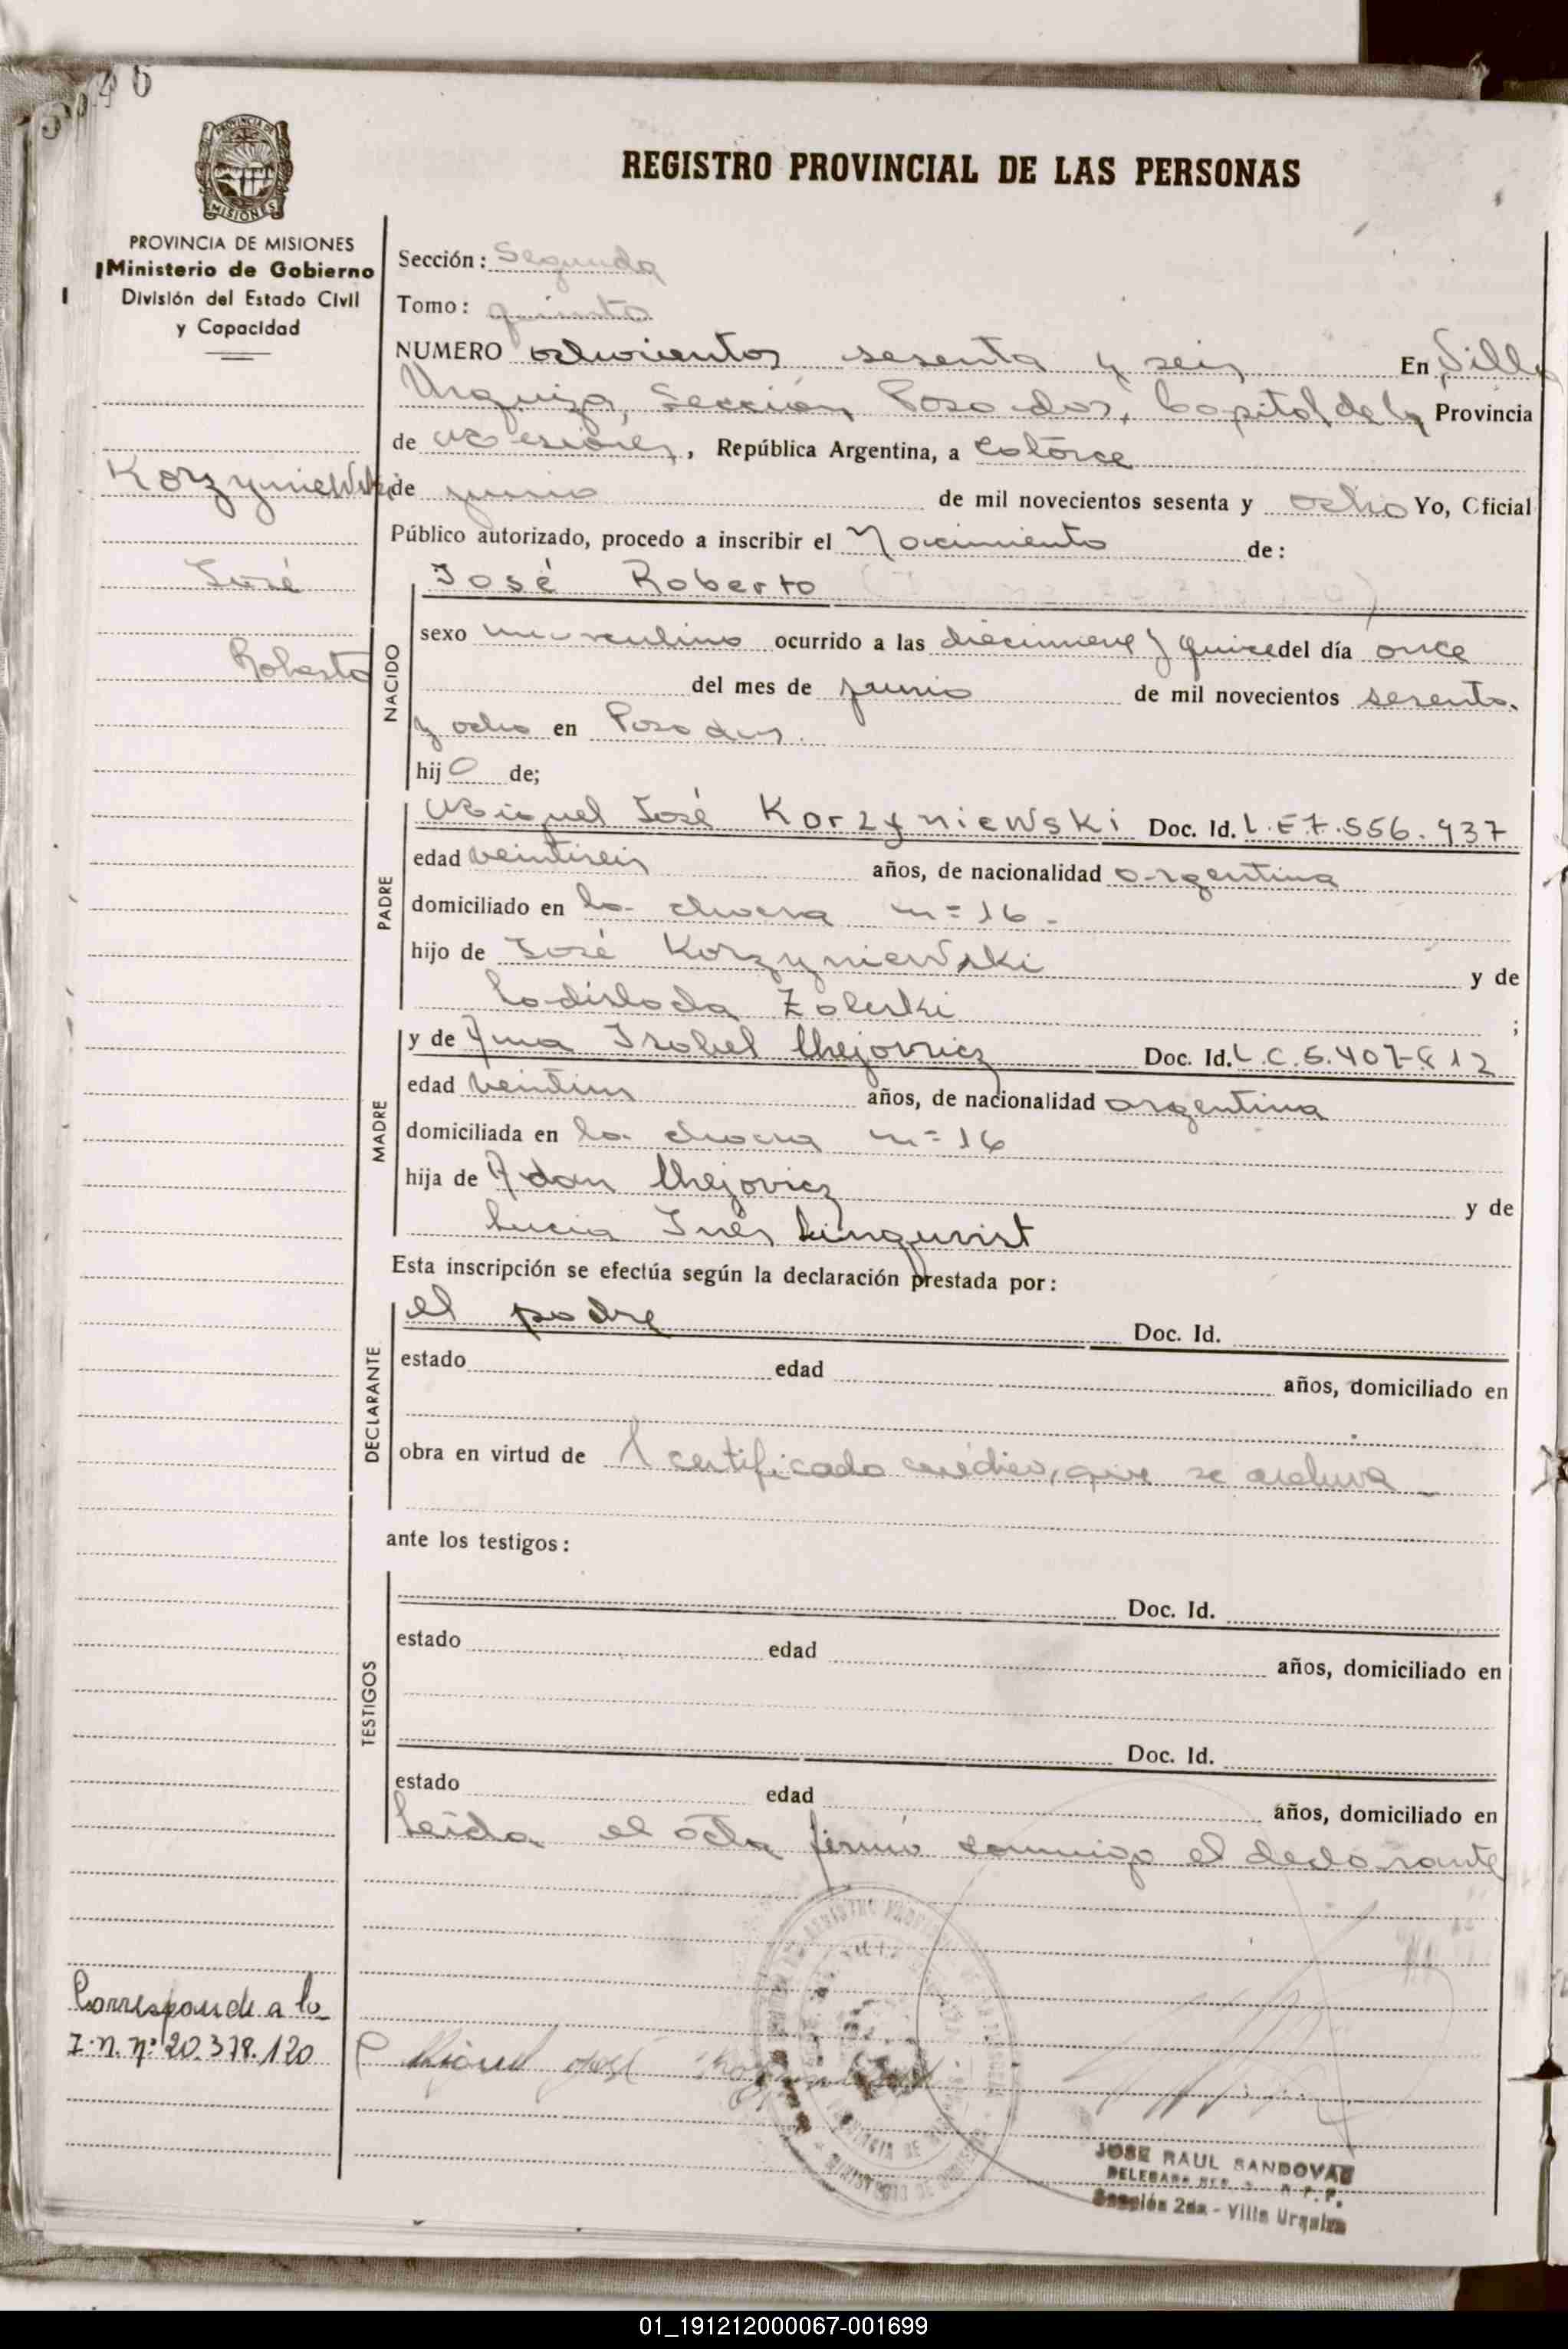 46
PROVINCIA DE
MISIONES
REGISTRO PROVINCIAL DE LAS PERSONAS
PROVINCIA DE MISIONES
Ministerio de Gobierno
División del Estado Civil
y Capacidad
Korzyniewski
José
Roberto
Sección: Segunda
Tomo: quinto
NUMERO ochocientos sesenta y seis En Villa
Urquiza, Sección Posadas, Capital de la Provincia
de Misiones, República Argentina, a catorce
de junio de mil novecientos sesenta y ocho Yo, Oficial
Público autorizado, procedo a inscribir el Nacimiento de:
José Roberto
NACIDO
sexo masculino ocurrido a las diecinueve y quince del día once
del mes de junio de mil novecientos sesenta
y ocho en Posadas.
hijo de;
PADRE
Miguel José Korzyniewski Doc. Id. L.E 7.556.437
edad veintiseis años, de nacionalidad argentina
domiciliado en la chacra n= 16 -
hijo de José Korzyniewski y de
Ladislada Zaleski ;
MADRE
y de Ana Isabel Chejovicz Doc. Id. L.C.5.407.812
edad veintiun años, de nacionalidad argentina
domiciliada en la chacra n= 16
hija de Adan Chejovicz y de
Lucia Inés Linquvist
Esta inscripción se efectúa según la declaración prestada por:
DECLARANTE
el padre Doc. Id.
estado edad años, domiciliado en
obra en virtud de certificado médico, que se archiva
ante los testigos:
TESTIGOS
Doc. Id.
estado edad años, domiciliado en
Doc. Id.
estado edad años, domiciliado en
Leída el acta firmó conmigo el declarante
Corresponde a la
I.n. nº 20.378.120
Miguel José
JOSE RAUL SANDOVAL
Sección 2da - Villa Urquiza
01_191212000067-001699